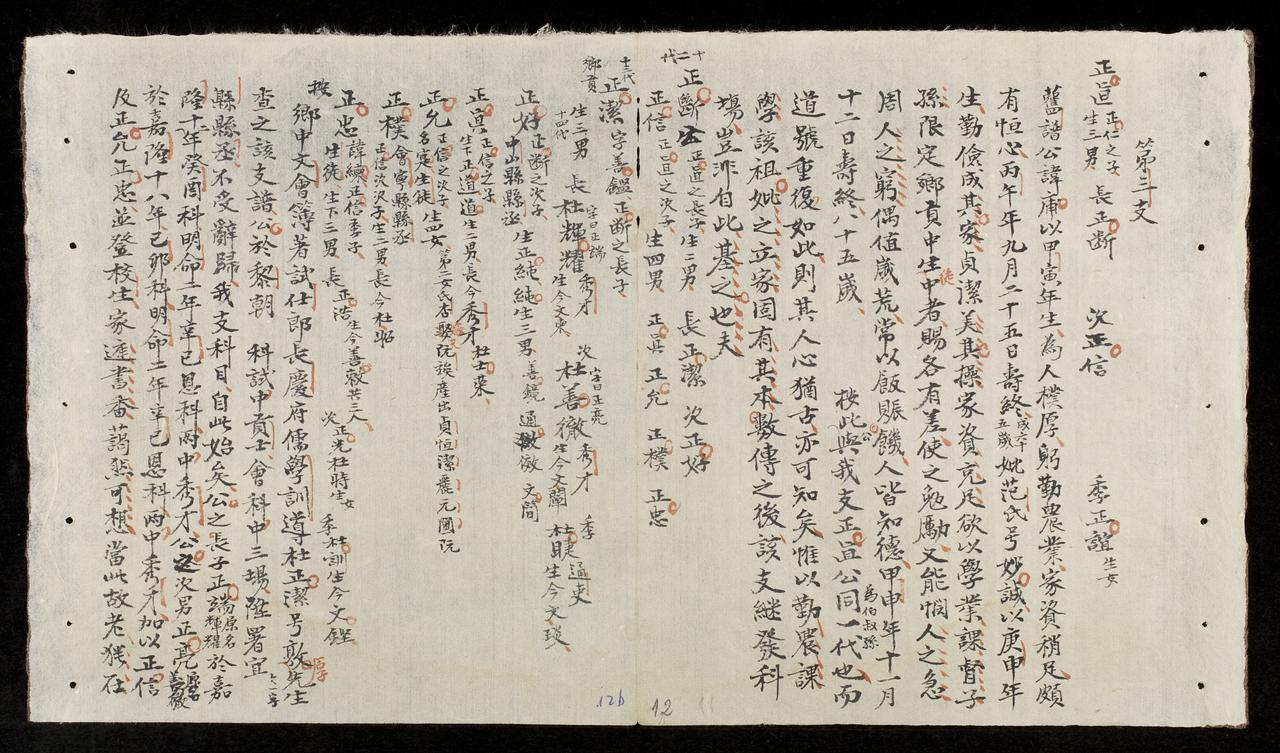 第三支
正㝉 正仁之子 生三男 長正断 次正信 季正誼 生女
舊譜公諱甫以甲寅年生為人樸厚躬勤農業家資稍足頗
有恒心丙午年九月二十五日壽終 成六十五歲 妣范氏号妙誠以庚申年
生勤儉成其家貞潔美其操家資充足欲以學業課督子
孫限定鄉貢中生徒中者賜各有差使之勉勵又能憫人之急
周人之窮偶值歲荒常以飯賑饑人皆知德甲申年十一月
十二日壽終、十五歲 按此公與我支正㝉公同一代也 為伯叔孫 而
道號重復如此則其人心猶古亦可知矣惟以勤農課
學該祖妣之立家固有其本數傳之後該支継發科
場豈非自此基之也夫
十二代
正斷 正㝉之長子 生二男 長正潔 次正好
正信 正㝉之次子 生四男 正真 正允 正樸 正忠
十三代
鄉貢
正潔 字善鑑 正断之長子
生三男 長杜輝耀 字曰正端 秀才 生今文束 次杜善徹 字曰正亮 秀才 生今文闡 季杜睫 通吏 生今文琰
十四代
正好 正断之次子 中山縣縣丞 生正純純生三男 善鏡 通激 文簡
正真 正信之子 生下正道道生二男長今秀才杜士來
正允 正信之次子 名定生徒 生四女 第二女氏杏嫛阮族產出貞恒潔農元圃阮
正樸 會寧縣縣丞 正信次次子生二男長今杜昭
正忠 諱練正信季子 生徒 生下三男 長正浩 生今善敦共三人 次正光杜時生女 季杜訓生今文鏗
按鄉中文會簿著試仕郎長慶府儒學訓導杜正潔号敦厚先生
查之該支譜公於黎朝 科試中貢士會科中三場陞署宜
縣縣丞不受辭歸我支科目自此始矣公之長子正端 原名輝耀 於嘉
隆十二年癸酉科明命二年辛巳恩科兩中秀才公之次男正亮 原名善徹
於嘉隆十八年己卯科明命二年辛巳恩科兩中秀才加以正信
及正允正忠並登校生家進書香藹然可想當此故老猶在
12b
12